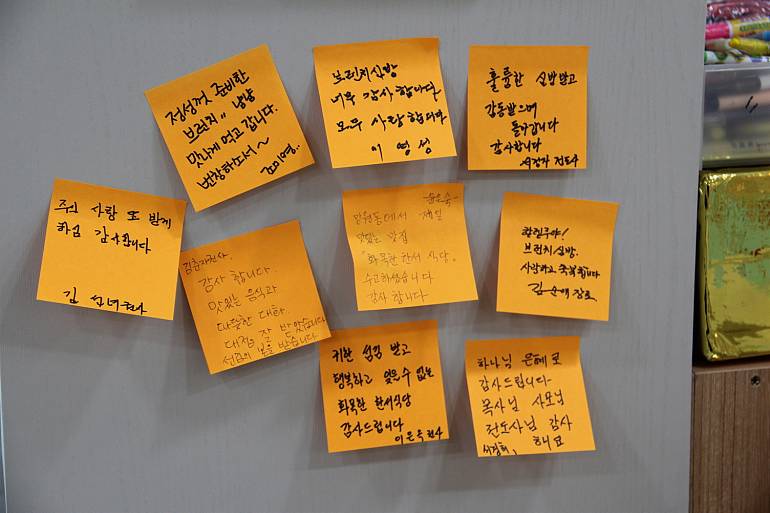 정성껏 준비한
브런치" 냠냠
맛나게 먹고 갑니다.
번창하소서~
브런치심방
너무 감사합니다
모두 사랑합니다
이영성
훌륭한 심방받고
감동받으며
돌아갑니다
감사합니다
전도사
주의 사랑 또 받게
하심 감사합니다
김
김춘자권사.
감사 합니다.
맛있는 음식과
따뜻한 대화.
대접을 잘 받았습니다
섬김의 복을 받습니다
망원동에서 제일
맛있는 맛집
"화목한 한서 식당.
수고하셨습니다
감사 합니다
브런치심방.
사랑하고 축복합니다
김순애 장로
귀한 섬김 받고
행복하고 잊을수 없는
화목한 한서식당
감사드립니다
이은옥권사
하나님 은혜로
감사드립니다-
목사님 사모님
전도사님 감사